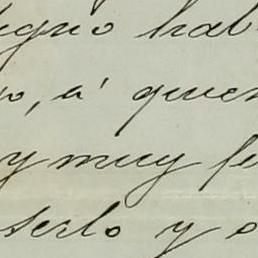 igno hab
o, á quien
y muy fe
serlo y o